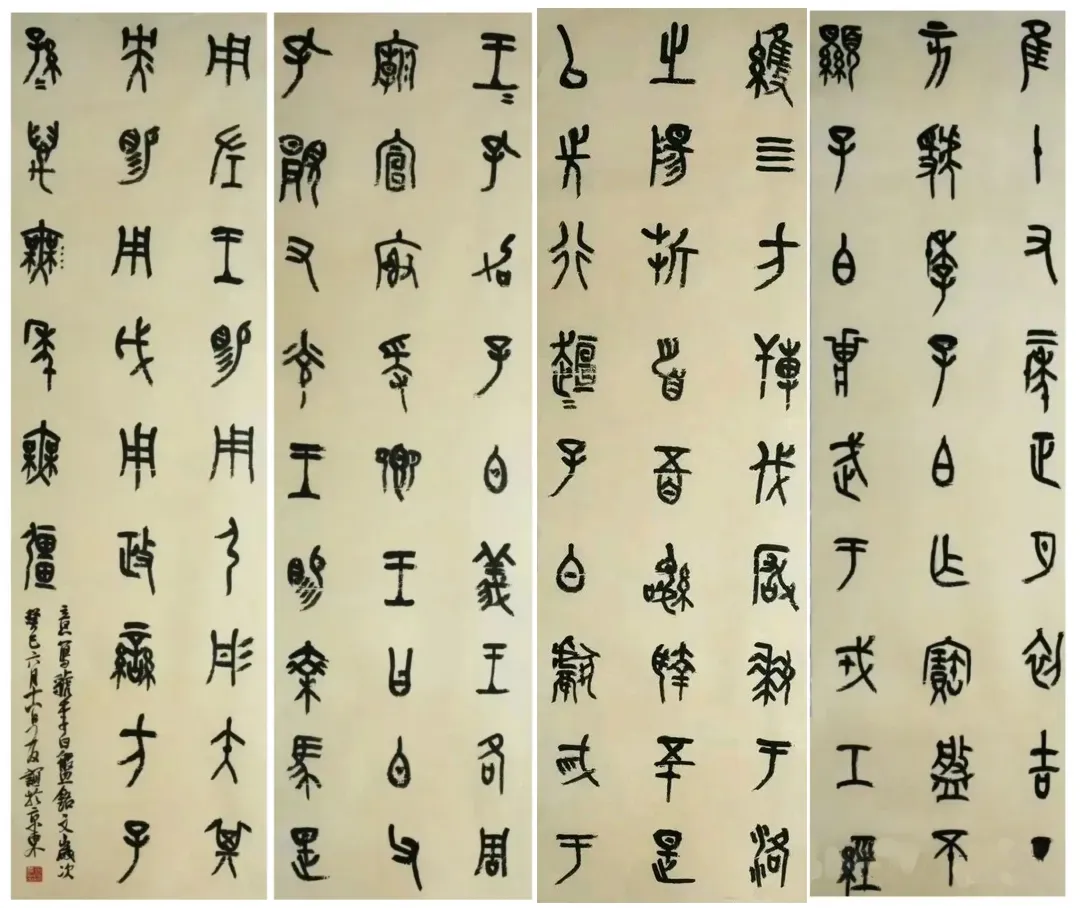 隹十又二年正月初吉丁
亥虢季子白乍寶盤不
顯子白𤕌武于戎工經
維四方搏伐玁狁于洛
之陽折首五百訊執五十是
以先行桓桓子白獻馘于
王王孔加子白義王各周
廟宣榭爰鄉王曰白父
孔顯又光王賜乘馬是
用左王賜用弓彤矢其
央賜用戉用政蠻方子
孫孫萬無年無疆
意寫虢季子白盤銘文歲次
癸巳六月十 於京東